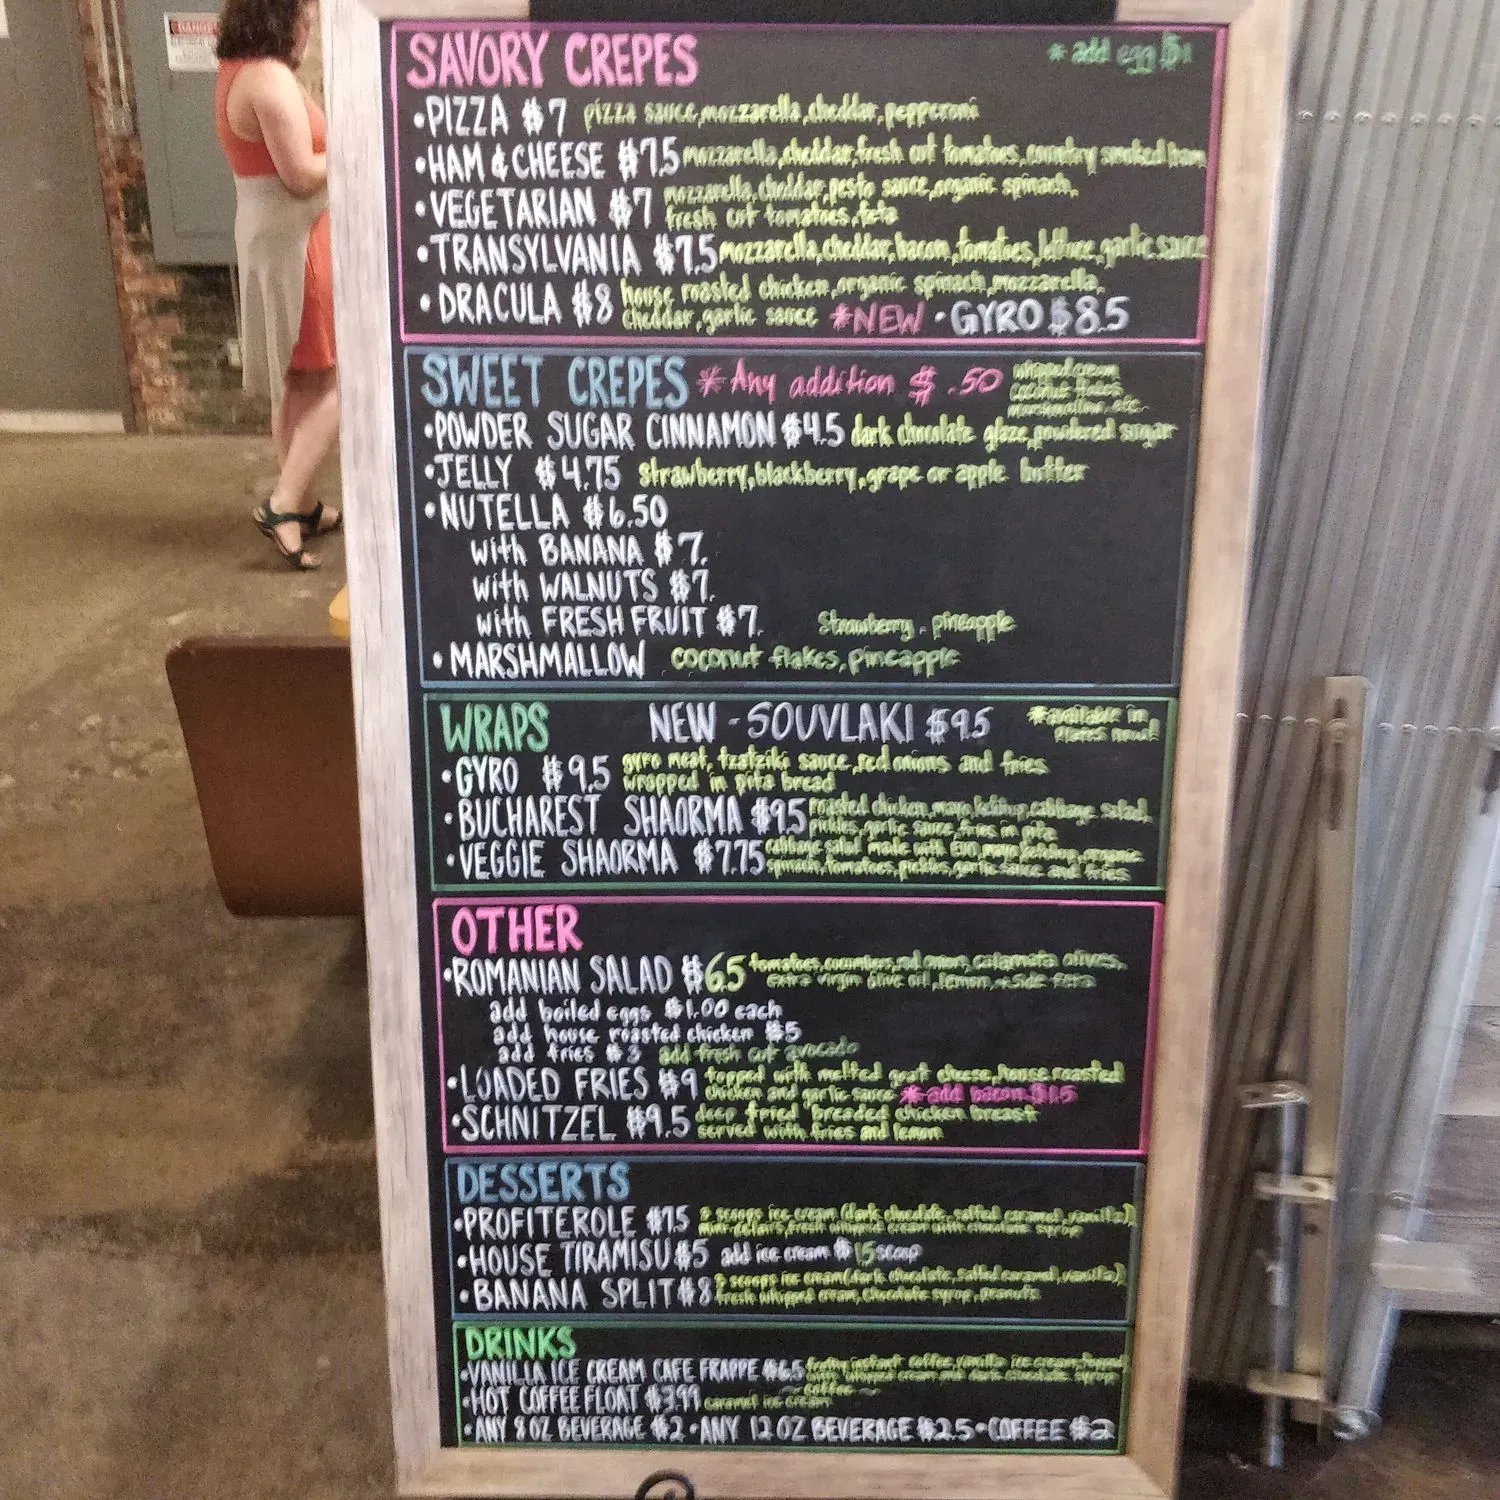 DANGER
SAVORY CREPES * add egg $1
•PIZZA $7 pizza sauce, mozzarella, cheddar, pepperoni
•HAM & CHEESE $7.5 mozzarella, cheddar, fresh cut tomatoes, country smoked ham
•VEGETARIAN $7 mozzarella, cheddar, pesto sauce, organic spinach,
fresh cut tomatoes, feta
•TRANSYLVANIA $7.5 mozzarella, cheddar, bacon, tomatoes, lettuce, garlic sauce
•DRACULA $8 house roasted chicken, organic spinach, mozzarella,
cheddar, garlic sauce *NEW • GYRO $8.5
SWEET CREPES * Any addition $ .50 whipped cream
coconut flakes
marshmallow, etc.
•POWDER SUGAR CINNAMON $4.5 dark chocolate glaze, powdered sugar
•JELLY $4.75 strawberry, blackberry, grape or apple butter
•NUTELLA $6.50
with BANANA $7.
with WALNUTS $7.
with FRESH FRUIT $7. Strawberry, pineapple
•MARSHMALLOW coconut flakes, pineapple
WRAPS NEW - SOUVLAKI $9.5 *available in
plates now!
•GYRO $9.5 gyro meat, tzatziki sauce, red onions and fries
wrapped in pita bread
•BUCHAREST SHAORMA $9.5 roasted chicken, mayo, ketchup, cabbage salad,
pickles, garlic sauce, fries in pita
•VEGGIE SHAORMA $7.75 cabbage salad made with EVO, mayo, ketchup, organic
spinach, tomatoes, pickles, garlic sauce and fries
OTHER
•ROMANIAN SALAD $6.5 tomatoes, cucumbers, red onion, calamata olives,
extra virgin olive oil, lemon, + side feta
add boiled eggs $1.00 each
add house roasted chicken $5
add fries $3 add fresh cut avocado
•LOADED FRIES $9 topped with melted goat cheese, house roasted
chicken and garlic sauce *add bacon $1.5
•SCHNITZEL $9.5 deep fried breaded chicken breast
served with fries and lemon
DESSERTS
•PROFITEROLE $7.5 2 scoops ice cream (dark chocolate, salted caramel, vanilla)
mini eclairs, fresh whipped cream with chocolate syrup
•HOUSE TIRAMISU $5 add ice cream $1.5 scoop
•BANANA SPLIT $8 2 scoops ice cream (dark chocolate, salted caramel, vanilla)
fresh whipped cream, chocolate syrup, peanuts
DRINKS
•VANILLA ICE CREAM CAFE FRAPPE $6.5 frothy instant coffee, vanilla ice cream, topped
with whipped cream and dark chocolate syrup
•HOT COFFEE FLOAT $3.99 caramel ice cream ~ coffee ~
•ANY 8 OZ BEVERAGE $2 • ANY 12 OZ BEVERAGE $2.5 • COFFEE $2